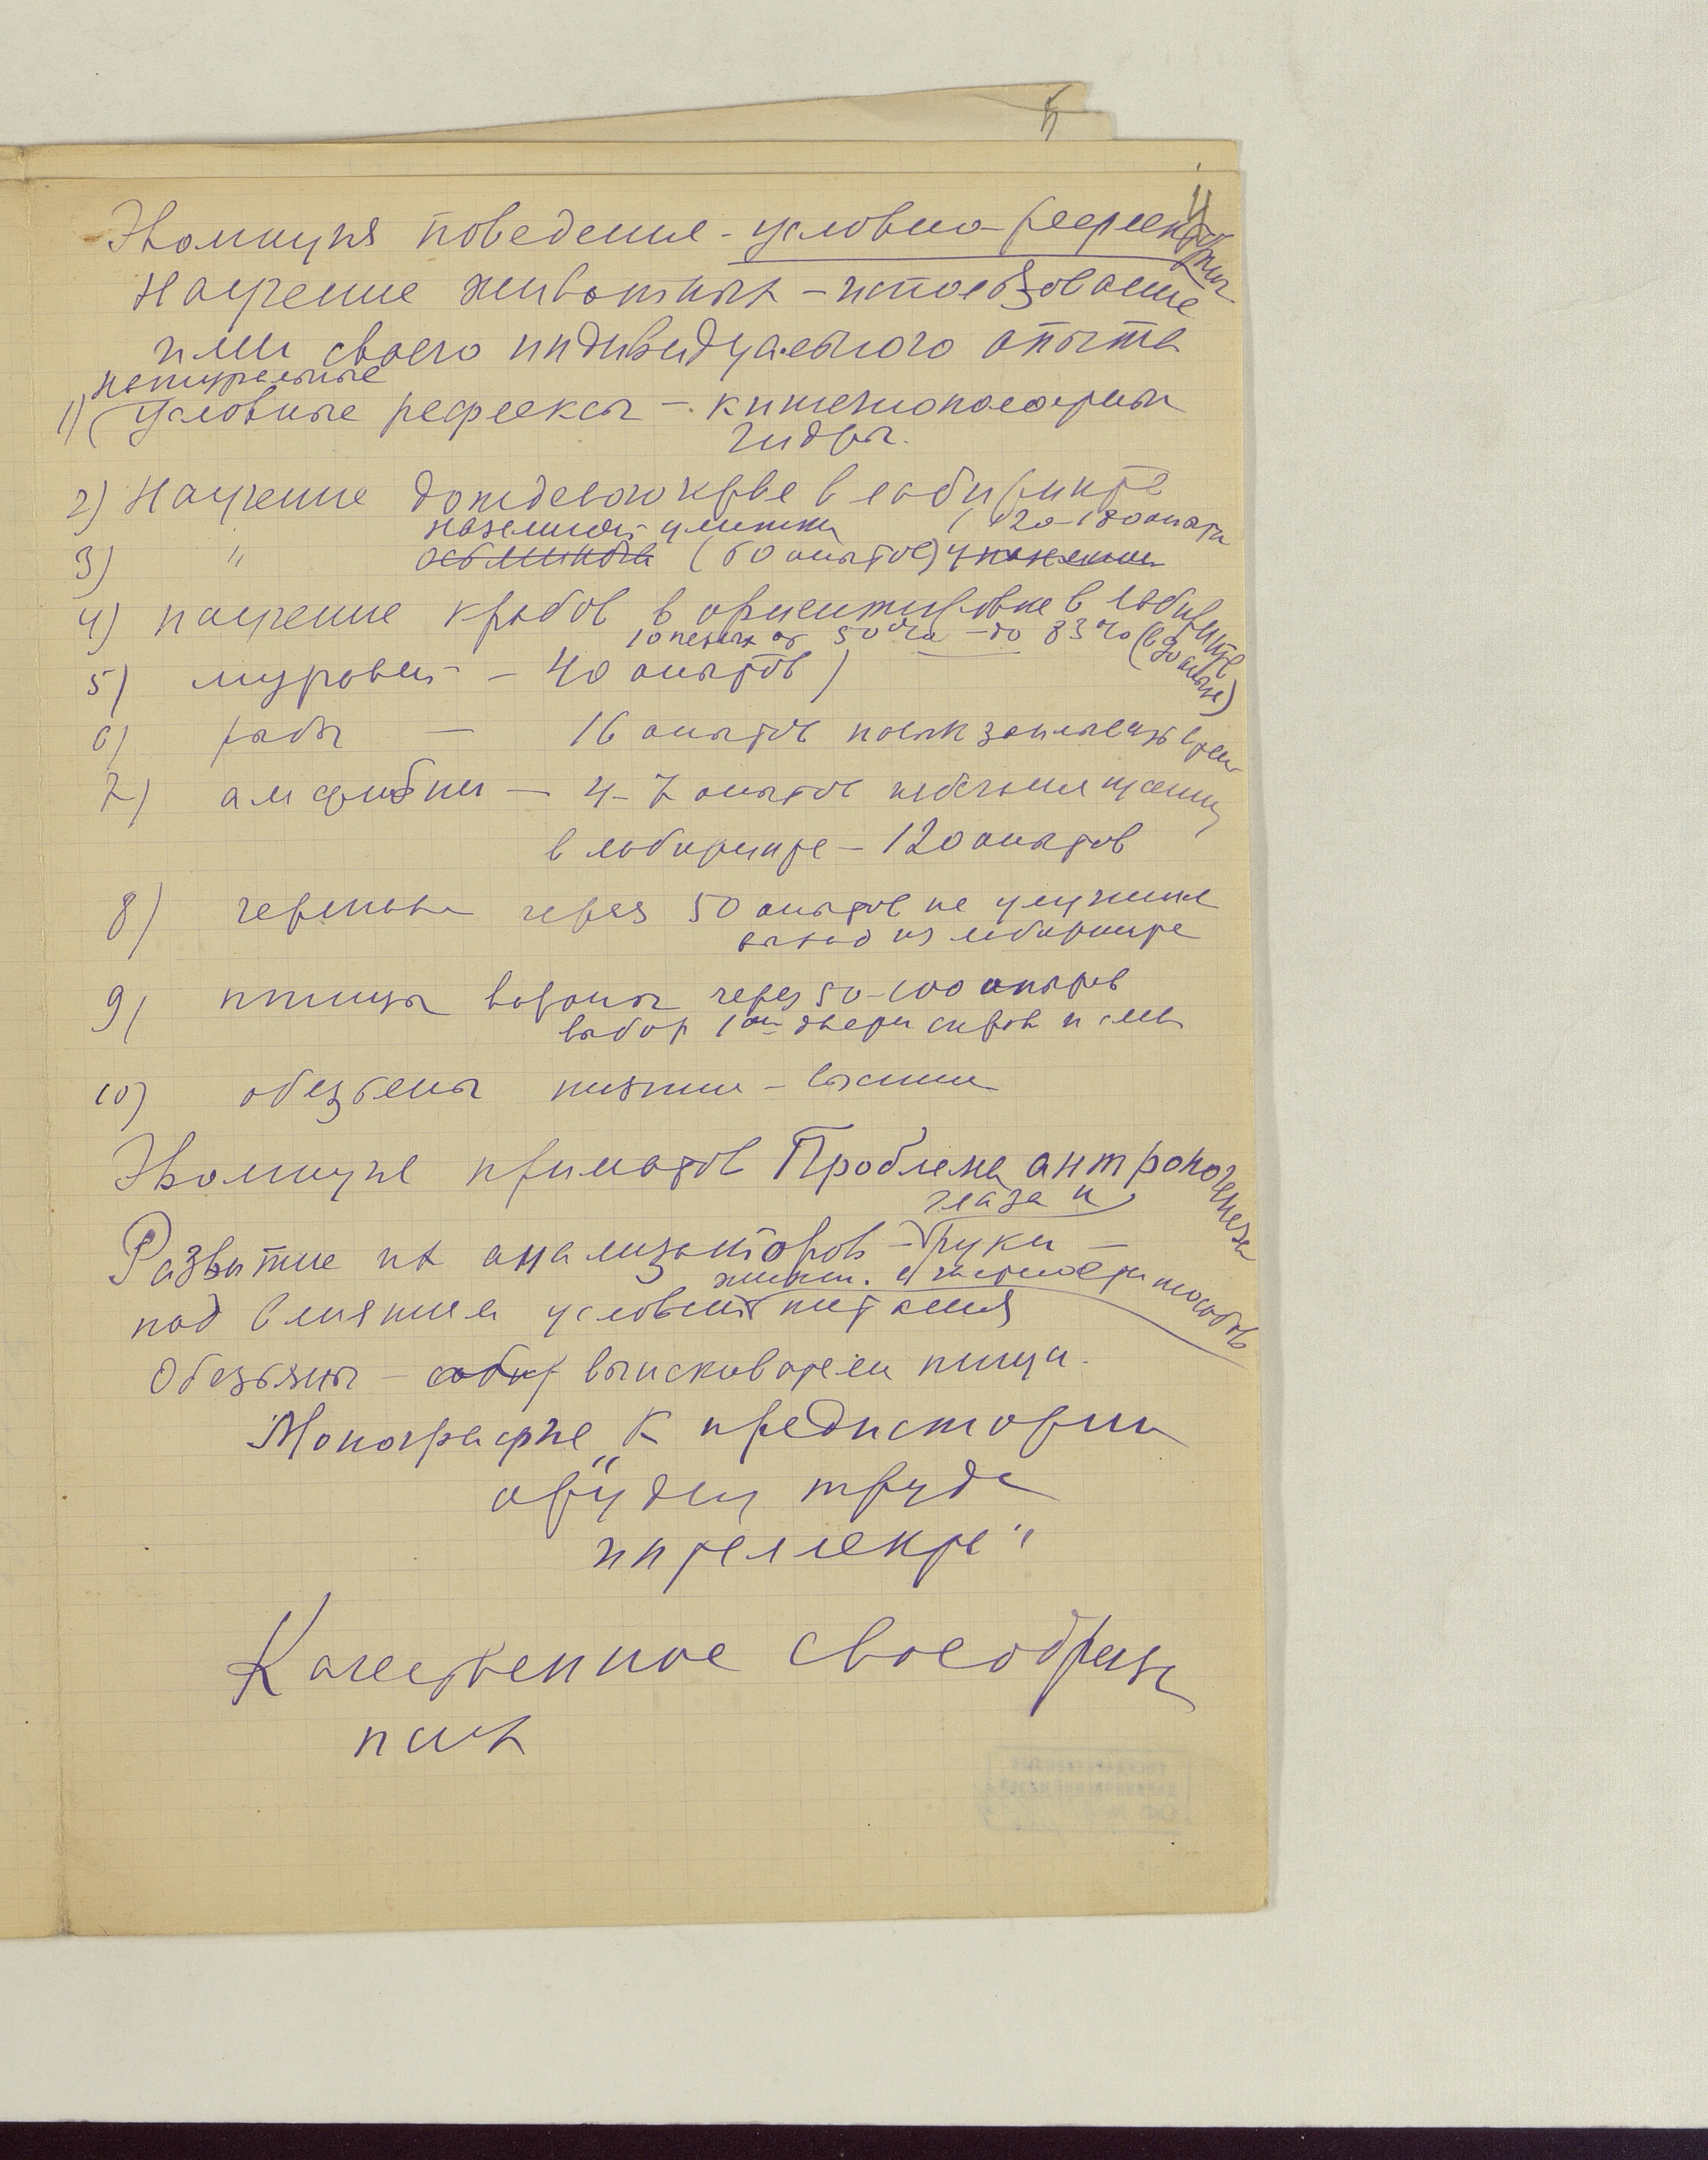 5
4
Эволюция поведения - условно-рефлекторных
Научение животных - использование
ими своего индивидуального опыта
натуральные
1) (Условные рефлексы - кишечнополостных
гидры.
2) Научение дождевого червя в лабиринте
наземной улитки (120-180 опыта
3) " осьминога (60 опытов)
4) научение крабов в ориентировке в лабиринте
10 недель от 50% - до 83% (в
5) муравей - 40 опытов)
6) рыбы - 16 опытов заплывать
7) амфибии - 4-7 опытов избегания
в лабиринте - 120 опытов
8) черепаха через 50 опытов не улучшила
выход из лабиринта
9) птицы вороны через 50-100 опытов
выбор 1ой двери справа и слева
10) обезьяны низшие - высшие
Эволюция приматов Проблема антропогенеза
глаза и
Развитие их анализаторов - руки -
под влиянием условий питания
Обезьяны - собир выискиватели пищи.
Монография „К предистории
орудий труда
интеллекта"
Качественное своеобразие
псих